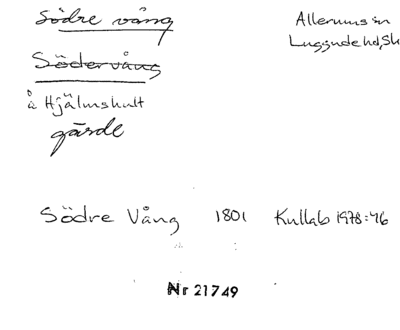 Södre vång
Allerums sn
Luggude hd, Sk
Södervång
å Hjälmshult
gärde
Södre Vång 1801 Kullab 1978:46
Nr 21749